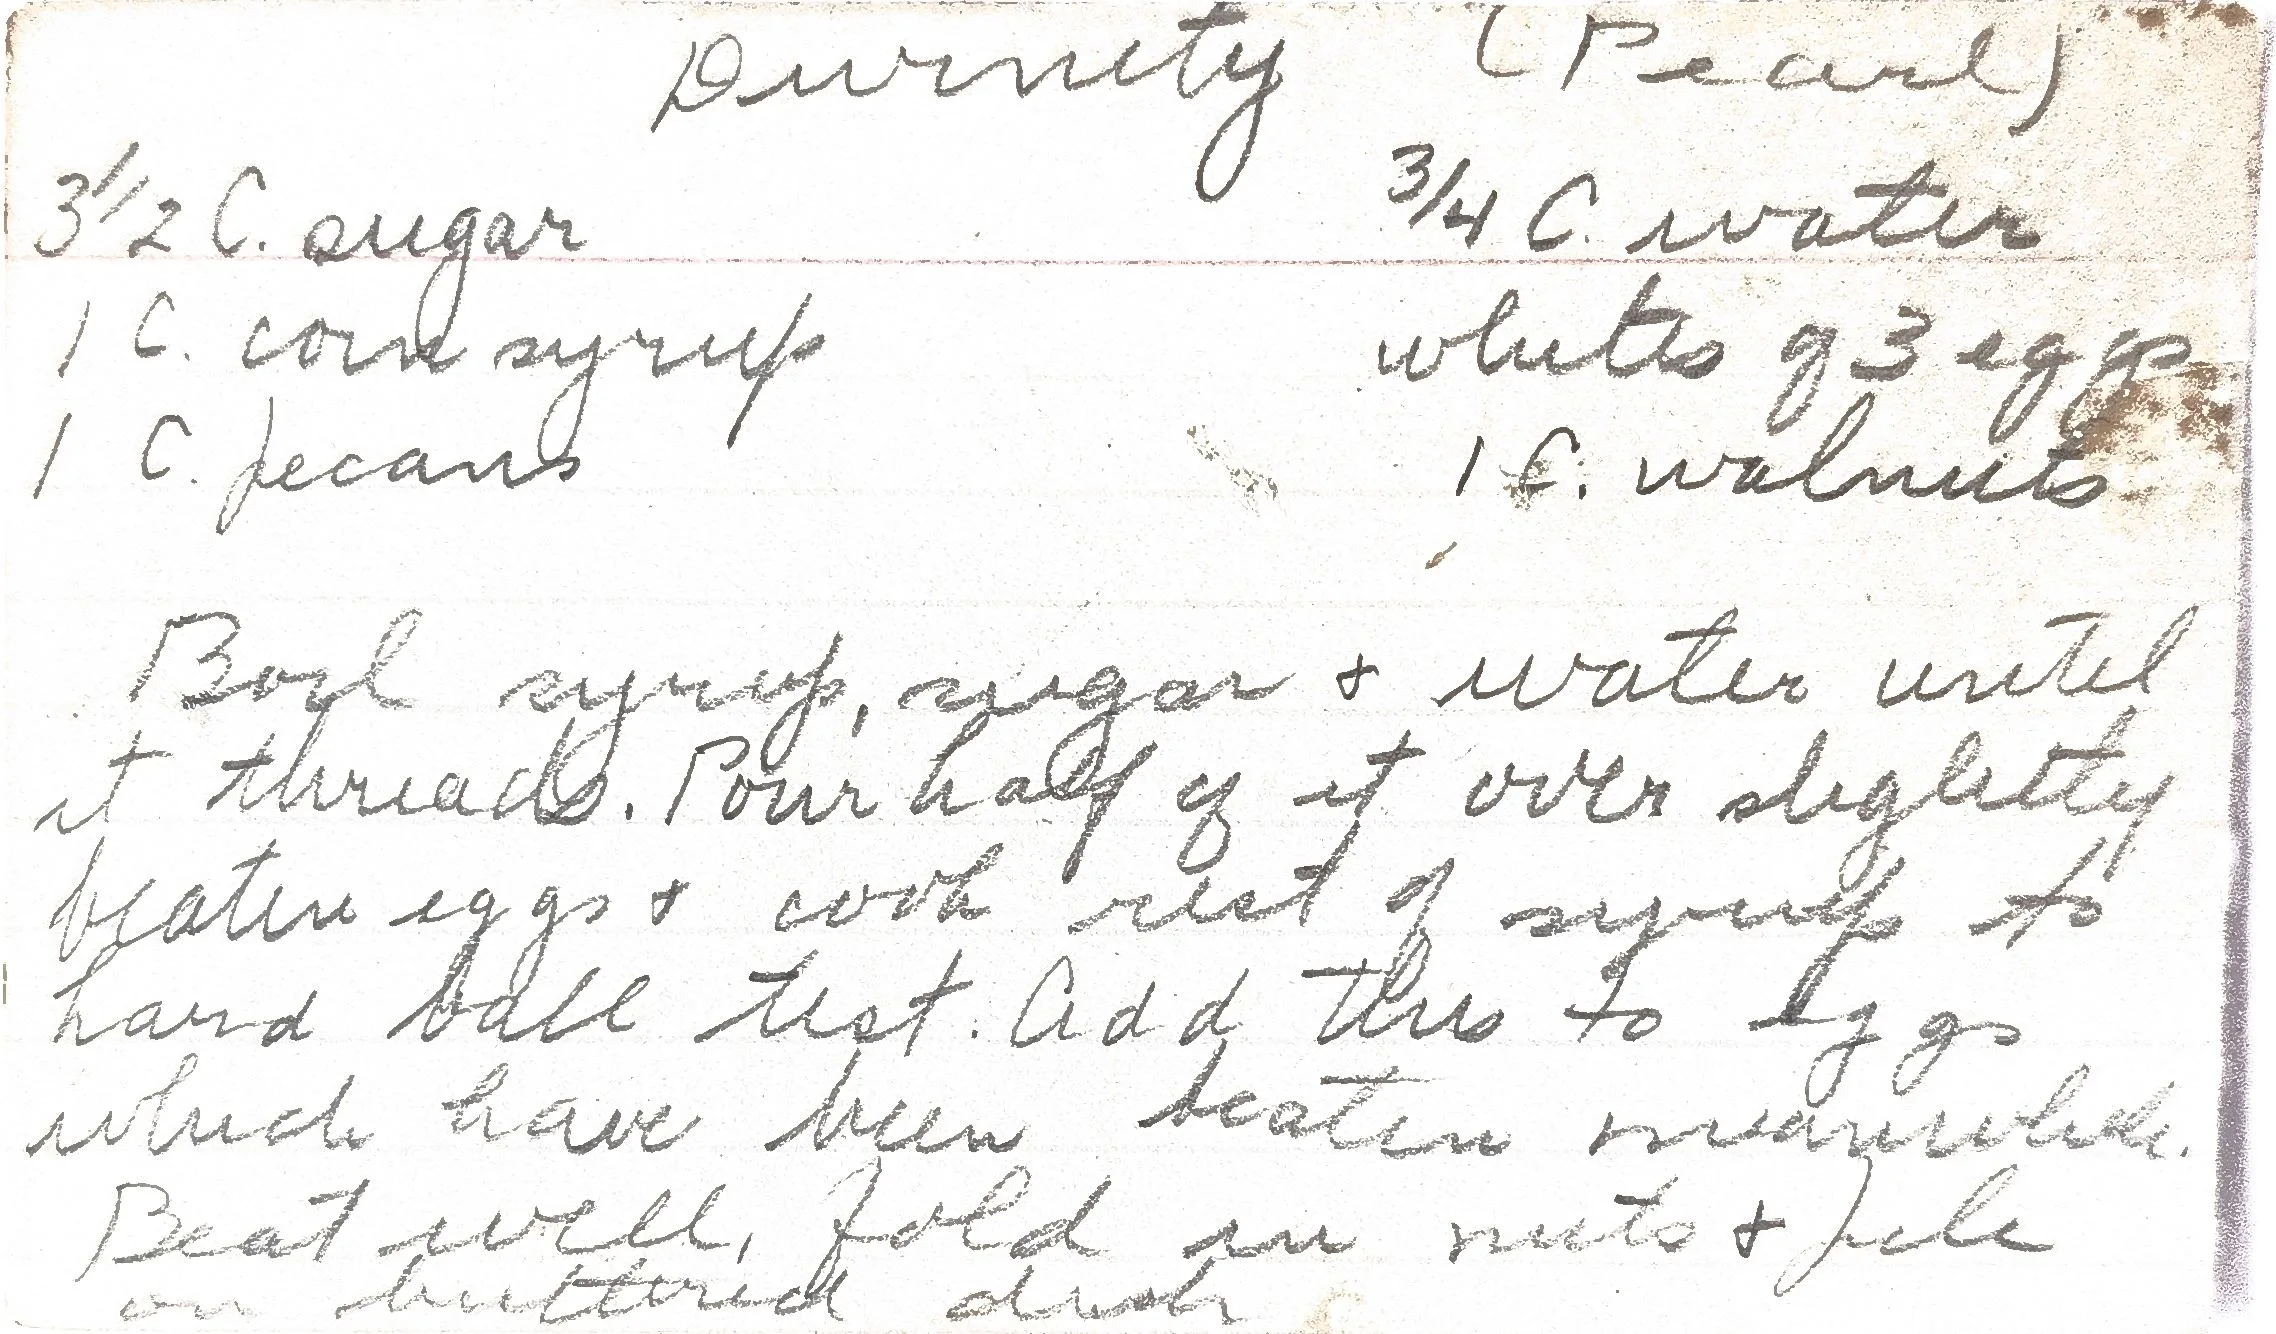 Divinity (Pearl)
3 1/2 C. sugar 3/4 C. water
1 C. corn syrup whites of 3 eggs
1 C. pecans 1 C. walnuts
Boil syrup, sugar + water until
it threads. Pour half of it over slightly
beaten eggs + cook rest of syrup to
hard ball test. Add this to eggs
which have been beaten meanwhile.
Beat well, fold in nuts + pile
on buttered dish